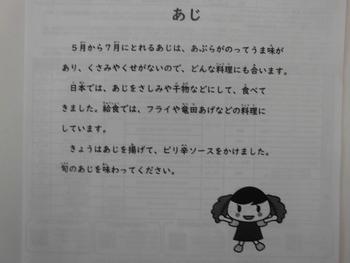 あじ
５月から７月にとれるあじは、あぶらがのってうま味が
あり、くさみやくせがないので、どんな料理にも合います。
日本では、あじをさしみや干物などにして、食べて
きました。給食では、フライや竜田あげなどの料理に
しています。
きょうはあじを揚げて、ピリ辛ソースをかけました。
旬のあじを味わってください。